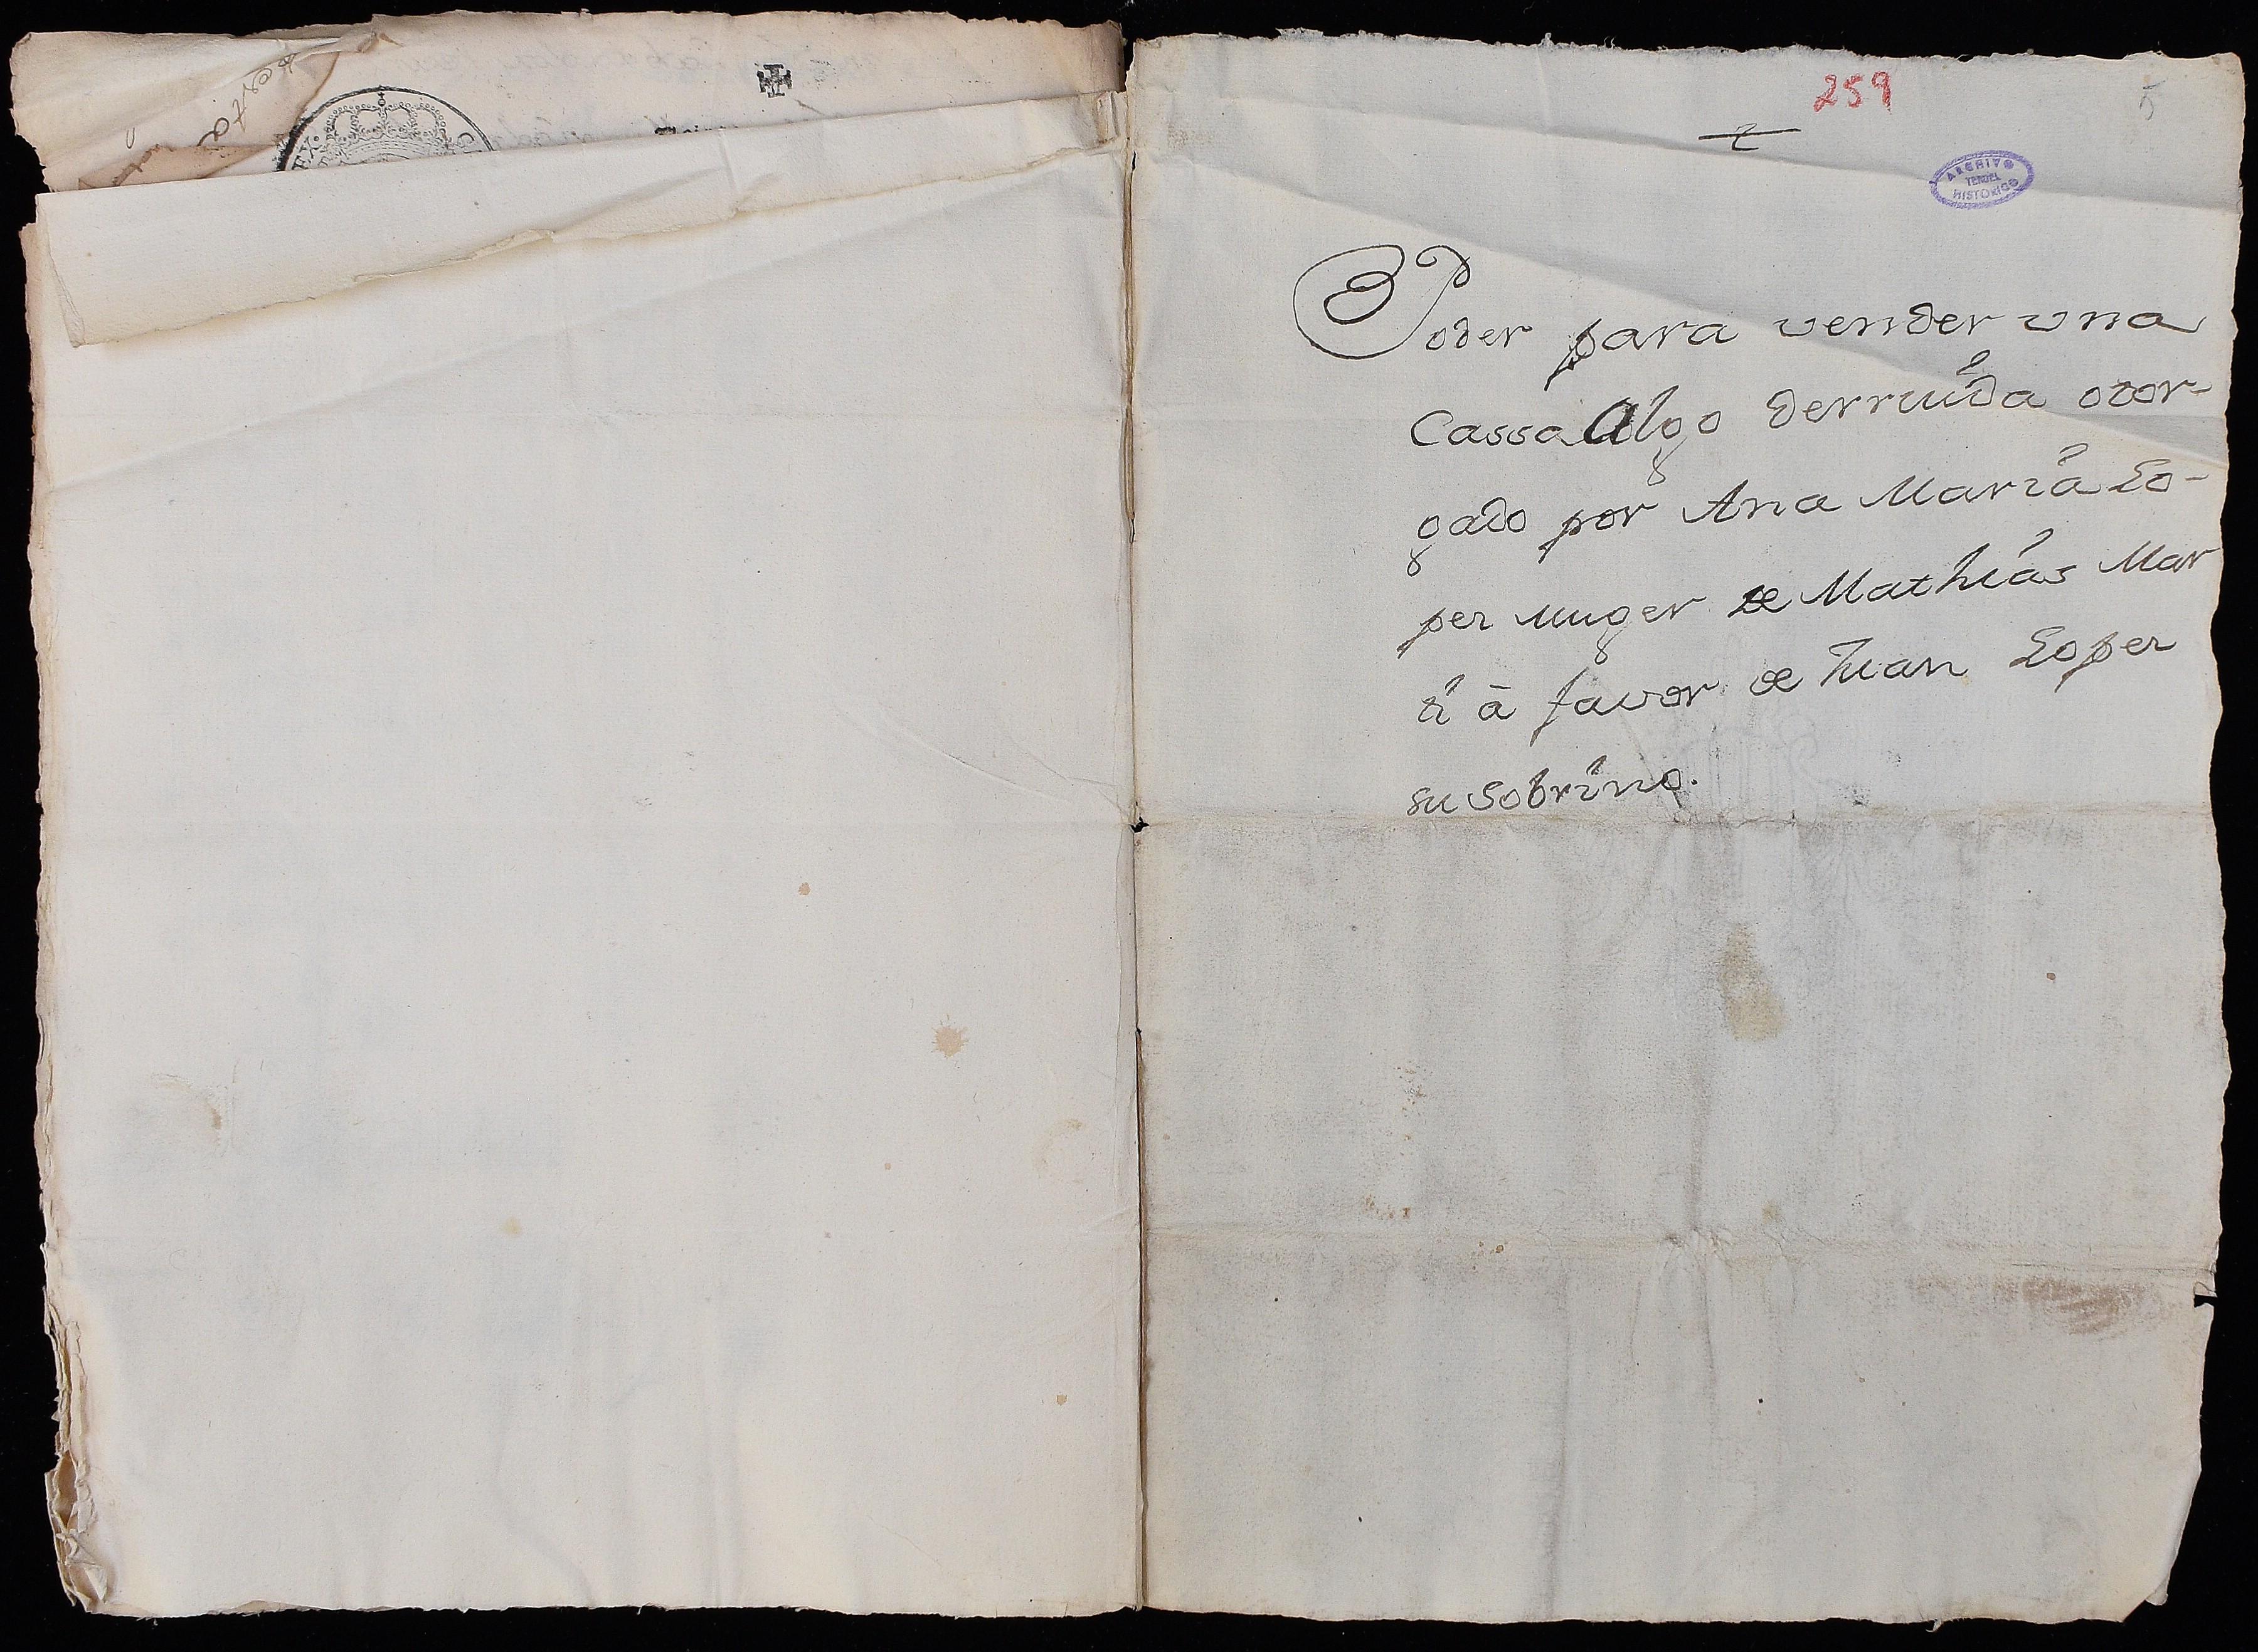 259
5
ARCHIVO
TERUEL
HISTORICO
Poder para vender vna
Cassa Algo derruida otor-
gado por Ana Maria Lo-
pez muger de Mathias Mar
ti à favor de Juan Lopez
su sobrino.